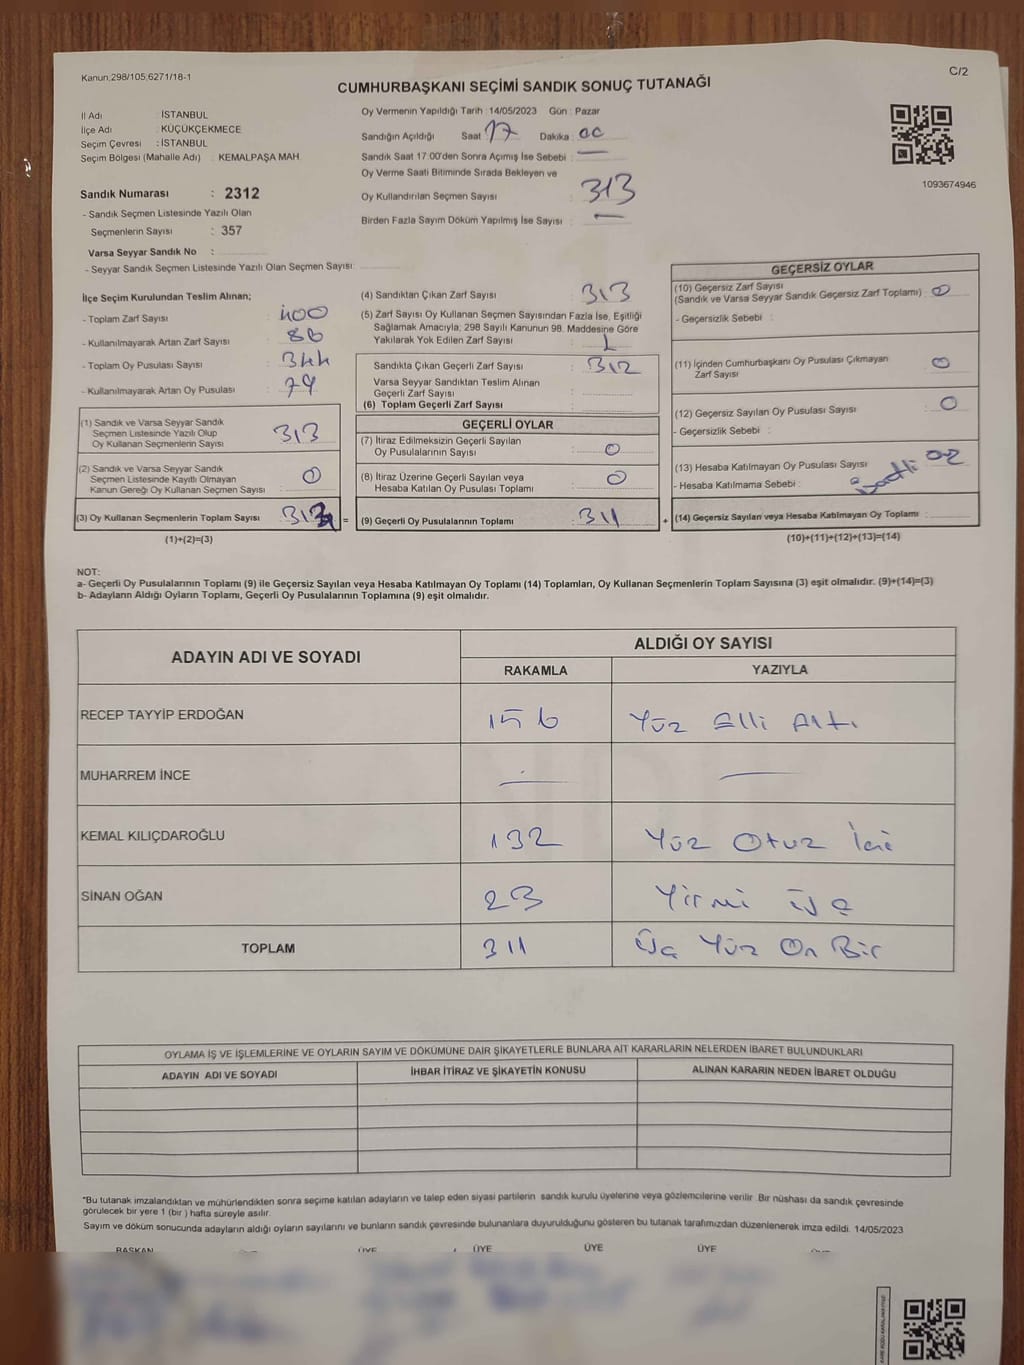 Kanun;298/105;6271/18-1
C/2
CUMHURBAŞKANI SEÇİMİ SANDIK SONUÇ TUTANAĞI
İl Adı : İSTANBUL
İlçe Adı : KÜÇÜKÇEKMECE
Seçim Çevresi : İSTANBUL
Seçim Bölgesi (Mahalle Adı) : KEMALPAŞA MAH.
Sandık Numarası : 2312
- Sandık Seçmen Listesinde Yazılı Olan
Seçmenlerin Sayısı : 357
Varsa Seyyar Sandık No :
- Seyyar Sandık Seçmen Listesinde Yazılı Olan Seçmen Sayısı:
Oy Vermenin Yapıldığı Tarih : 14/05/2023 Gün : Pazar
Sandığın Açıldığı Saat 17 Dakika : 00
Sandık Saat 17:00'den Sonra Açımış İse Sebebi :
Oy Verme Saati Bitiminde Sırada Bekleyen ve
Oy Kullandırılan Seçmen Sayısı : 313
Birden Fazla Sayım Döküm Yapılmış İse Sayısı :
1093674946
İlçe Seçim Kurulundan Teslim Alınan;
- Toplam Zarf Sayısı : 400
- Kullanılmayarak Artan Zarf Sayısı : 86
- Toplam Oy Pusulası Sayısı : 344
- Kullanılmayarak Artan Oy Pusulası : 79
(1) Sandık ve Varsa Seyyar Sandık
Seçmen Listesinde Yazılı Olup
Oy Kullanan Seçmenlerin Sayısı 313
(2) Sandık ve Varsa Seyyar Sandık
Seçmen Listesinde Kayıtlı Olmayan
Kanun Gereği Oy Kullanan Seçmen Sayısı : 0
(3) Oy Kullanan Seçmenlerin Toplam Sayısı : 313 =
(1)+(2)=(3)
(4) Sandıktan Çıkan Zarf Sayısı : 313
(5) Zarf Sayısı Oy Kullanan Seçmen Sayısından Fazla İse, Eşitliği
Sağlamak Amacıyla; 298 Sayılı Kanunun 98. Maddesine Göre
Yakılarak Yok Edilen Zarf Sayısı : 1
Sandıkta Çıkan Geçerli Zarf Sayısı : 312
Varsa Seyyar Sandıktan Teslim Alınan
Geçerli Zarf Sayısı :
(6) Toplam Geçerli Zarf Sayısı :
GEÇERLİ OYLAR
(7) İtiraz Edilmeksizin Geçerli Sayılan
Oy Pusulalarının Sayısı : 0
(8) İtiraz Üzerine Geçerli Sayılan veya
Hesaba Katılan Oy Pusulası Toplamı : 0
(9) Geçerli Oy Pusulalarının Toplamı : 311 +
GEÇERSİZ OYLAR
(10) Geçersiz Zarf Sayısı
(Sandık ve Varsa Seyyar Sandık Geçersiz Zarf Toplamı) : 0
- Geçersizlik Sebebi :
(11) İçinden Cumhurbaşkanı Oy Pusulası Çıkmayan
Zarf Sayısı : 0
(12) Geçersiz Sayılan Oy Pusulası Sayısı : 0
- Geçersizlik Sebebi :
(13) Hesaba Katılmayan Oy Pusulası Sayısı : 02
- Hesaba Katılmama Sebebi :
(14) Geçersiz Sayılan veya Hesaba Katılmayan Oy Toplamı :
(10)+(11)+(12)+(13)=(14)
NOT:
a- Geçerli Oy Pusulalarının Toplamı (9) ile Geçersiz Sayılan veya Hesaba Katılmayan Oy Toplamı (14) Toplamları, Oy Kullanan Seçmenlerin Toplam Sayısına (3) eşit olmalıdır. (9)+(14)=(3)
b- Adayların Aldığı Oyların Toplamı, Geçerli Oy Pusulalarının Toplamına (9) eşit olmalıdır.
ADAYIN ADI VE SOYADI
ALDIĞI OY SAYISI
RAKAMLA YAZIYLA
RECEP TAYYİP ERDOĞAN 156 Yüz Elli Altı
MUHARREM İNCE
KEMAL KILIÇDAROĞLU 132 Yüz Otuz İki
SİNAN OĞAN 23 Yirmi Üç
TOPLAM 311 Üç Yüz On Bir
OYLAMA İŞ VE İŞLEMLERİNE VE OYLARIN SAYIM VE DÖKÜMÜNE DAİR ŞİKAYETLERLE BUNLARA AİT KARARLARIN NELERDEN İBARET BULUNDUKLARI
ADAYIN ADI VE SOYADI İHBAR İTİRAZ VE ŞİKAYETİN KONUSU ALINAN KARARIN NEDEN İBARET OLDUĞU
"Bu tutanak imzalandıktan ve mühürlendikten sonra seçime katılan adayların ve talep eden siyasi partilerin sandık kurulu üyelerine veya gözlemcilerine verilir. Bir nüshası da sandık çevresinde
görülecek bir yere 1 (bir) hafta süreyle asılır.
Sayım ve döküm sonucunda adayların aldığı oyların sayılarını ve bunların sandık çevresinde bulunanlara duyurulduğunu gösteren bu tutanak tarafımızdan düzenlenerek imza edildi. 14/05/2023
BAŞKAN ÜYE ÜYE ÜYE ÜYE ÜYE